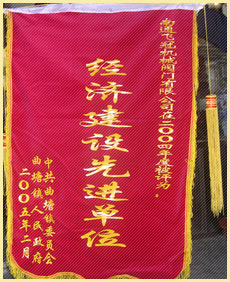 南通飞冠机械阀门有限公司在二00四年度被评为:
经济建设先进单位
中共曲塘镇委员会
曲塘镇人民政府
二00五年二月